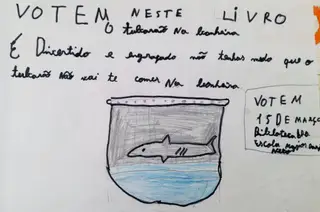 VOTEM NESTE LIVRO
O tubarão Na banheira
É Divertido e engraçado não tenhas medo que o
tubarão Não vai te comer Na banheira
VOTEM
15 DE MARÇO
Biblioteca
Escola